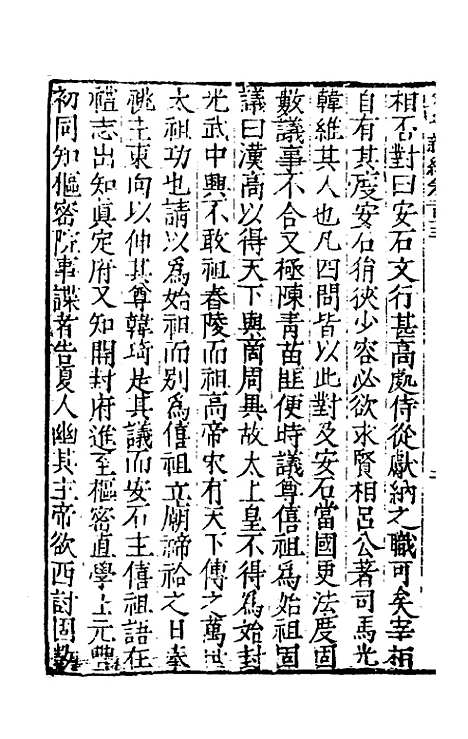 相否對曰安石文行甚高處侍從獻納之職可矣宰相
自有其度安石狷狹少容必欲求賢相吕公著司馬光
韓維其人也凡四問皆以此對及安石當國更法度固
數議事不合又極陳青苗非便時議尊僖祖為始祖固
議曰漢高以得天下與商周異故太上皇不得為始封
光武中興不敢祖舂陵而祖高帝宋有天下傳之萬世
太祖功也請以為始祖而别為僖祖立廟禘祫之日奉
祧主東向以伸其尊韓琦是其議而安石主僖祖語在
禮志出知眞定府又知開封府進至樞密直學士元豐
初同知樞密院事諜者告夏人幽其主帝欲西討固數